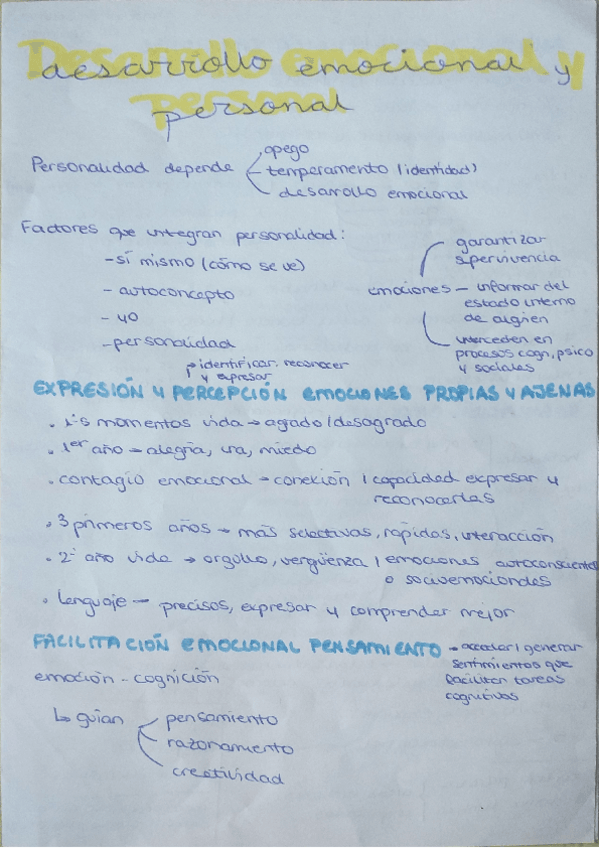 desarrollo emocional y
personal
Personalidad depende
apego
temperamento (identidad)
desarrollo emocional
Factores que integran personalidad:
-sí mismo (cómo se ve)
- autoconcepto
- yo
- personalidad
emociones
garantizar
supervivencia
- informar del
estado interno
de alguien
interceden en
procesos cogn, psico
y sociales
identificar, reconocer
y expresar
EXPRESIÓN Y PERCEPCIÓN EMOCIONES PROPIAS Y AJENAS
. 1ºs momentos vida → agrado/desagrado
. 1er año → alegría, ira, miedo
. contagio emocional → conexión / capacidad expresar y
reconocerlas
. 3 primeros años → más selectivas, rápidas, interacción
. 2º año vida → orgullo, vergüenza / emociones autoconscientes
o socioemocionales
. lenguaje → precisos, expresar y comprender mejor
FACILITACIÓN EMOCIONAL PENSAMIENTO → acceder / generar
sentimientos que
faciliten tareas
cognitivas
emoción - cognición
↳ guían
pensamiento
razonamiento
creatividad